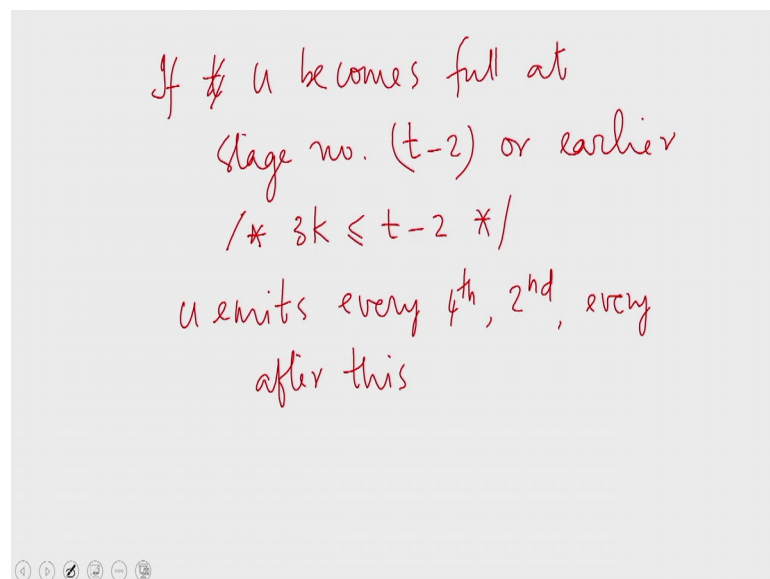 If u becomes full at
stage no. (t-2) or earlier
/* 3k ≤ t-2 */
u emits every 4th, 2nd, every
after this